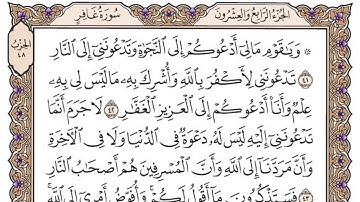 سُورَةُ غَافِرٍ
الجُزْءُ الرَّابِعُ وَالعِشْرُونَ
الحِزْبُ
٤٨
۞ وَيَٰقَوْمِ مَا لِيٓ أَدْعُوكُمْ إِلَى ٱلنَّجَوٰةِ وَتَدْعُونَنِيٓ إِلَى ٱلنَّارِ
٤١ تَدْعُونَنِي لِأَكْفُرَ بِٱللَّهِ وَأُشْرِكَ بِهِۦ مَا لَيْسَ لِي بِهِۦ
عِلْمٌ وَأَنَا۠ أَدْعُوكُمْ إِلَى ٱلْعَزِيزِ ٱلْغَفَّٰرِ ٤٢ لَا جَرَمَ أَنَّمَا
تَدْعُونَنِيٓ إِلَيْهِ لَيْسَ لَهُۥ دَعْوَةٌ فِي ٱلدُّنْيَا وَلَا فِي ٱلْأٓخِرَةِ
وَأَنَّ مَرَدَّنَآ إِلَى ٱللَّهِ وَأَنَّ ٱلْمُسْرِفِينَ هُمْ أَصْحَٰبُ ٱلنَّارِ
٤٣ فَسَتَذْكُرُونَ مَآ أَقُولُ لَكُمْ وَأُفَوِّضُ أَمْرِيٓ إِلَى ٱللَّهِ